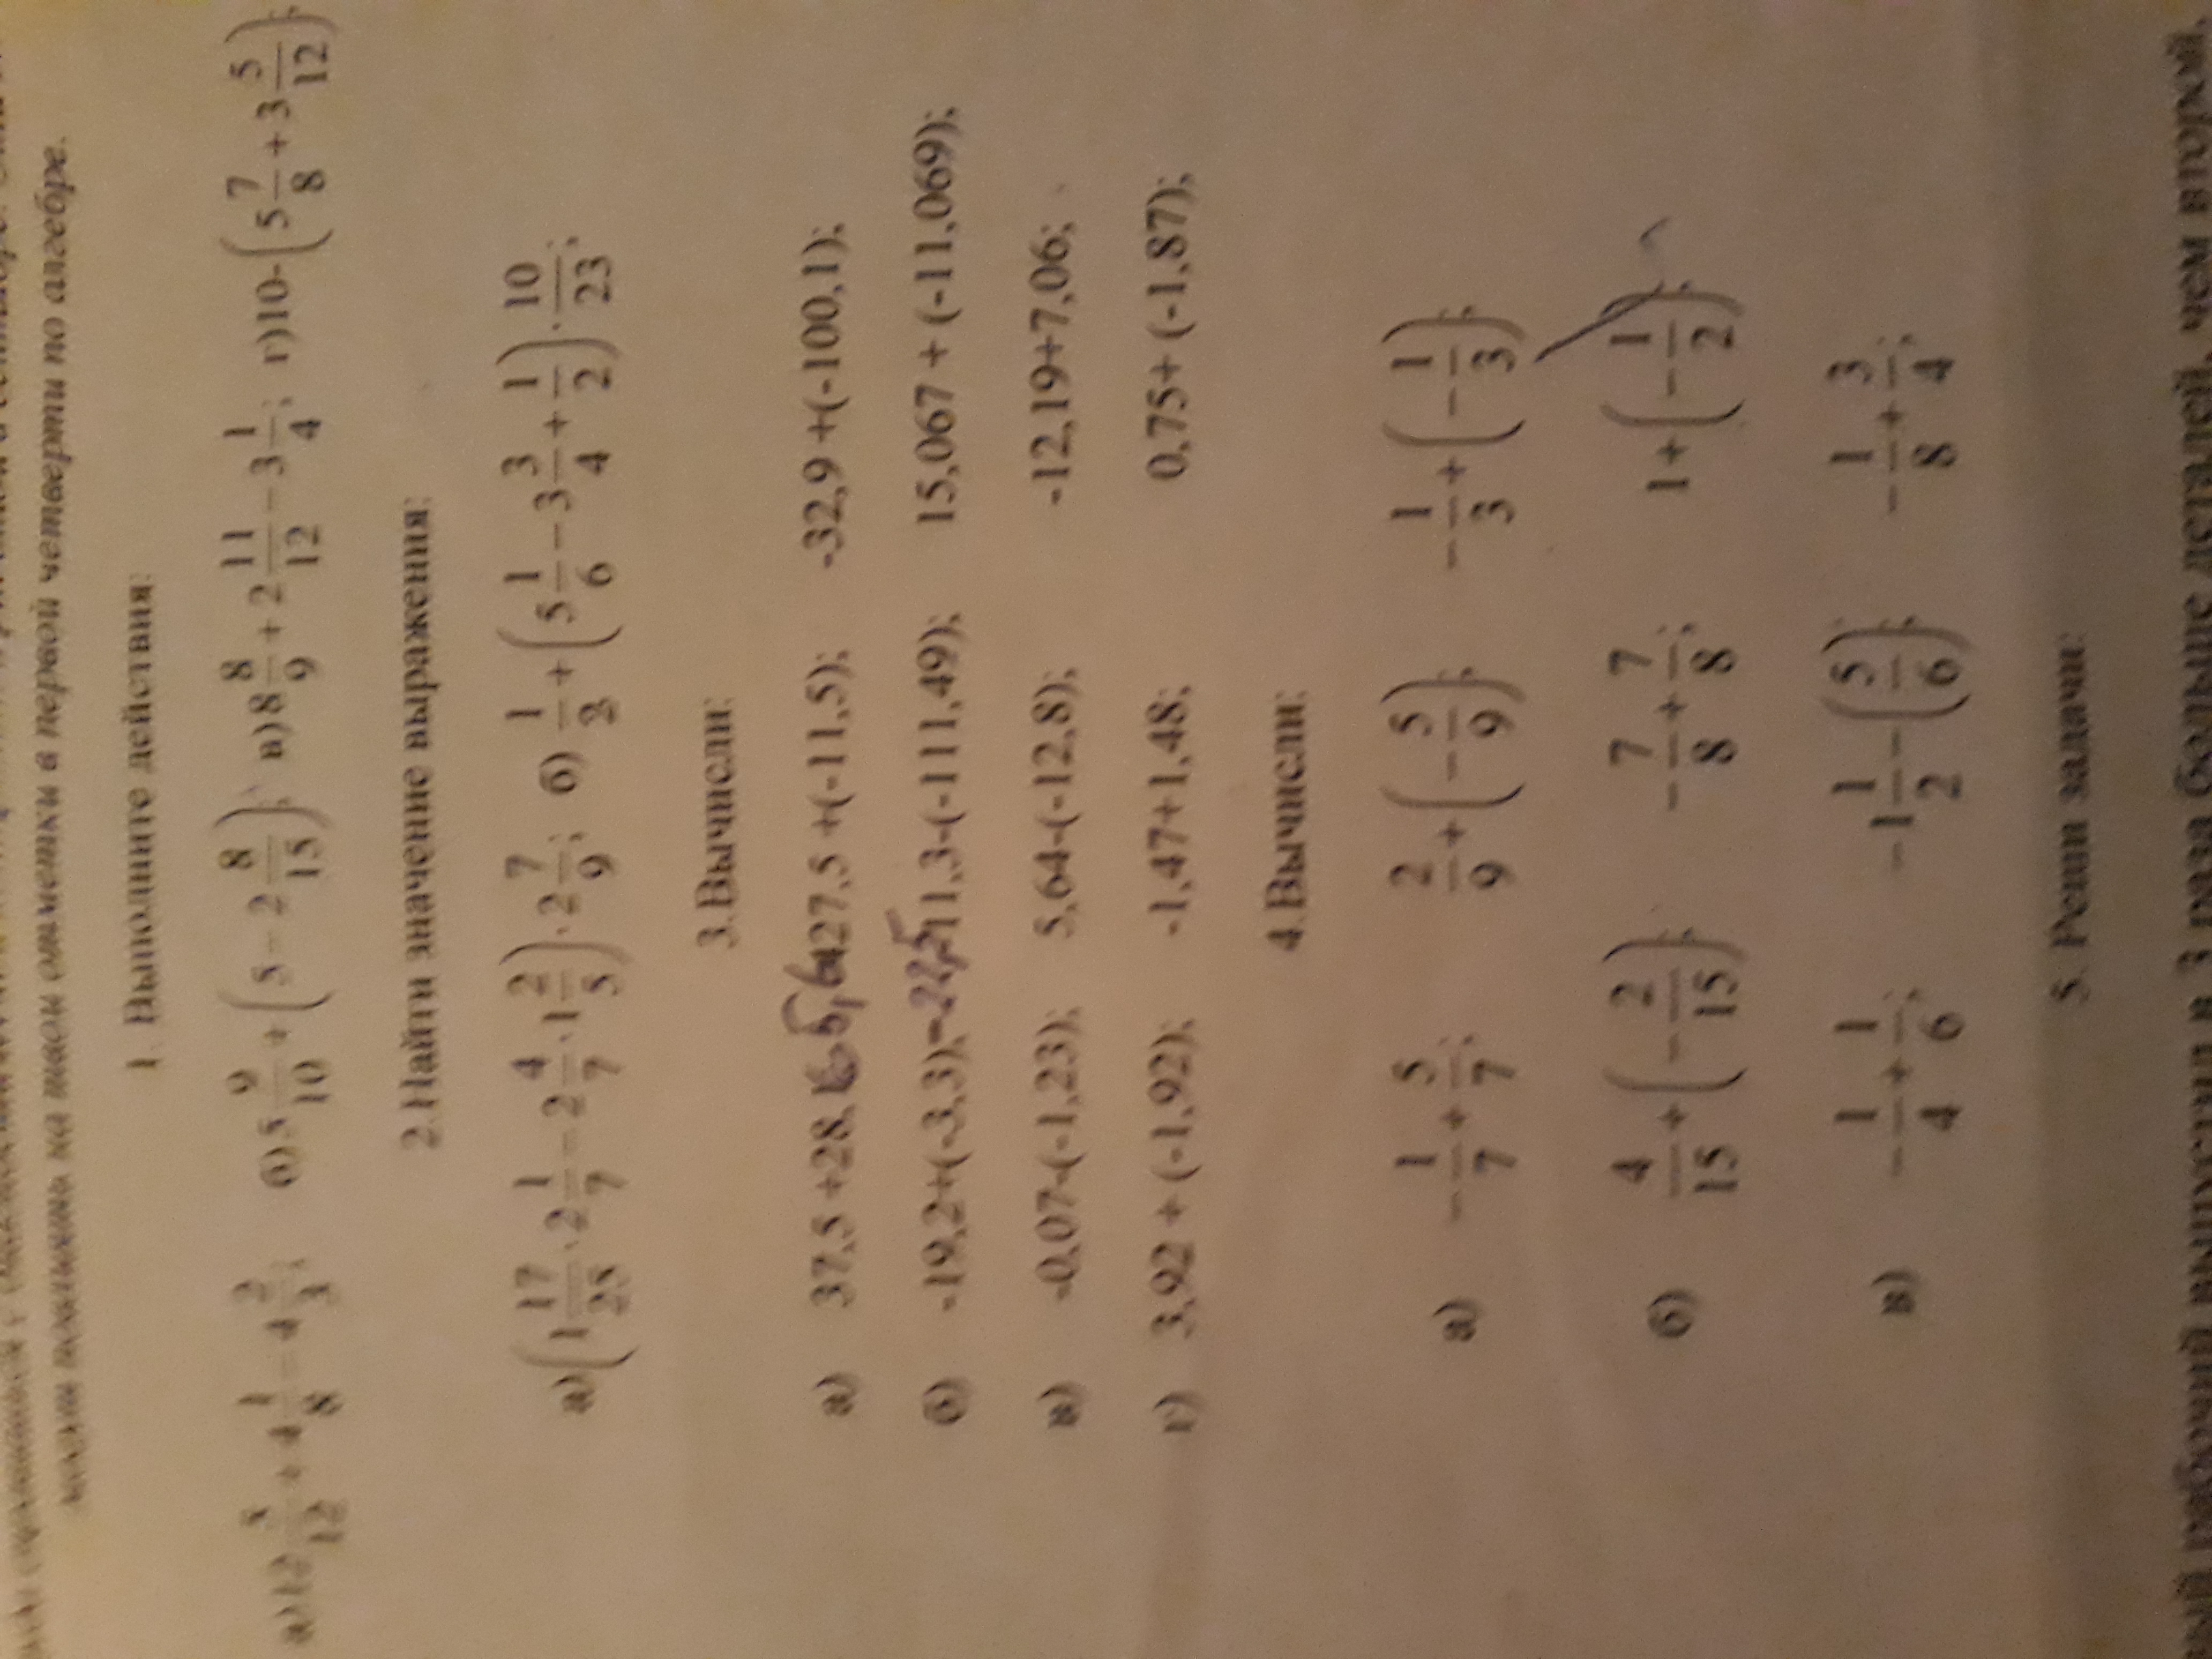 могли повлиять на твои отметки в первой четверти по алгебре.
1. Выполните действия:
а)12 5/12 + 4 1/8 − 4 2/3; б)5 9/10 + (5 − 2 8/15); в)8 8/9 + 2 11/12 − 3 1/4; г)10-(5 7/8 + 3 5/12)
2.Найти значение выражения:
а)(1 17/25 · 2 1/7 − 2 4/7 · 1 2/5) · 2 7/9; б) 1/3 + (5 1/6 − 3 3/4 + 1/2) · 10/23;
3.Вычисли:
а) 37,5 +28, 427,5 +(-11,5); -32,9 +(-100,1);
б) -19,2+(-3,3);-22,5 11,3-(-111,49); 15,067 + (-11,069);
в) -0,07-(-1,23); 5,64-(-12,8); -12,19+7,06;
г) 3,92 + (-1,92); -1,47+1,48; 0,75+ (-1,87);
4.Вычисли:
а) −1/7 + 5/7; 2/9 + (−5/9); −1/3 + (−1/3);
б) 4/15 + (−2/15); −7/8 + 7/8; 1 + (−1/2);
в) −1/4 + 1/6; −1 1/2 − (5/6); −1/8 + 3/4;
5. Реши задачи:
рабочий выпустил в 3 раза больше деталей, чем второй,